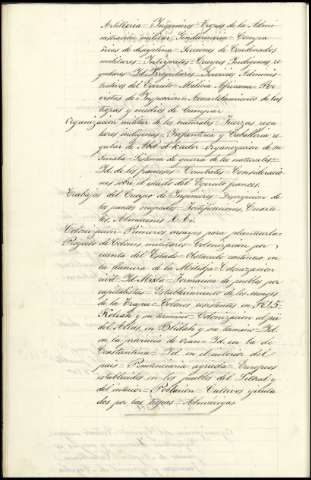 Artilleria = Ingenieros = Tropas de la Admi-
nistracion militar, Gendarmeria = Compa-
ñias de disciplina = Secciones de Condenados
militares = Interpretes = Cuerpos Indigenas re-
gulares = Id. Irregulares = Servicios Adminis-
trativos del Ejercito = Médico, Aprovision = Re-
vistas de Inspeccion = Acuartelamiento de las
tropas y medios de campar
Organizacion militar de los naturales = Fuerzas regu-
lares indigenas = Infanteria y Caballeria re-
gular de Abd-el-Kader = Organizacion de su
Smala = Sistema de guerra de los naturales =
Id. de los franceses = Combates = Consideracio-
nes sobre el estado del Ejercito frances.
Trabajos del Cuerpo de Ingenieros = Descripcion de
los puntos ocupados = Fortificaciones, Cuarte-
les, Almacenes &. &.
Colonizacion = Primeros ensayos para plantearla =
Proyecto de Colonos militares = Colonizacion por
cuenta del Estado = Obstaculo continuo en
la llanura de la Mitidja = Colonizacion
civil = Id. Mixta = Formacion de pueblos por
capitalistas = Establecimiento de los monges
de la Trapa = Colonos existentes en
Koleah y su termino = Colonizacion al pie
del Atlas, en Blidah y su termino = Id.
en la provincia de Oran = Id. en la de
Constantina = Id. en el interior del
pais = Penitenciaria agricola = Europeos
establecidos en los pueblos del Litoral y
del interior = Poblacion = Cultivos ejecuta-
dos por las tropas = Almarargas